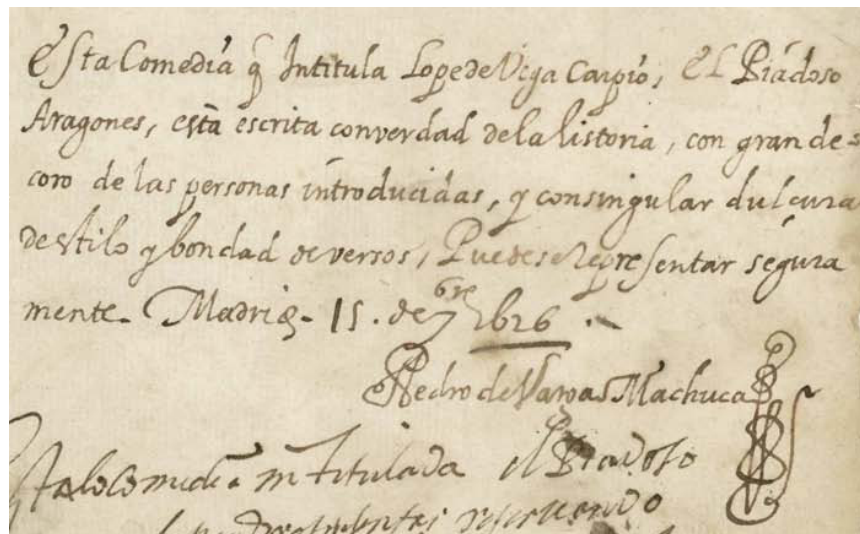 Esta Comedia q̃ Intitula Lope de Vega Carpio, EL Piadoso
Aragones, està escrita con verdad de la historia, con gran de=
coro de las personas introducidas, y con singular dulçura
de stilo y bondad de versos, Puedese Representar segura
mente. Madrid. 15. de 7bre 1626.
Pedro de Vargas Machuca
Esta comedia intitulada el Piadoso